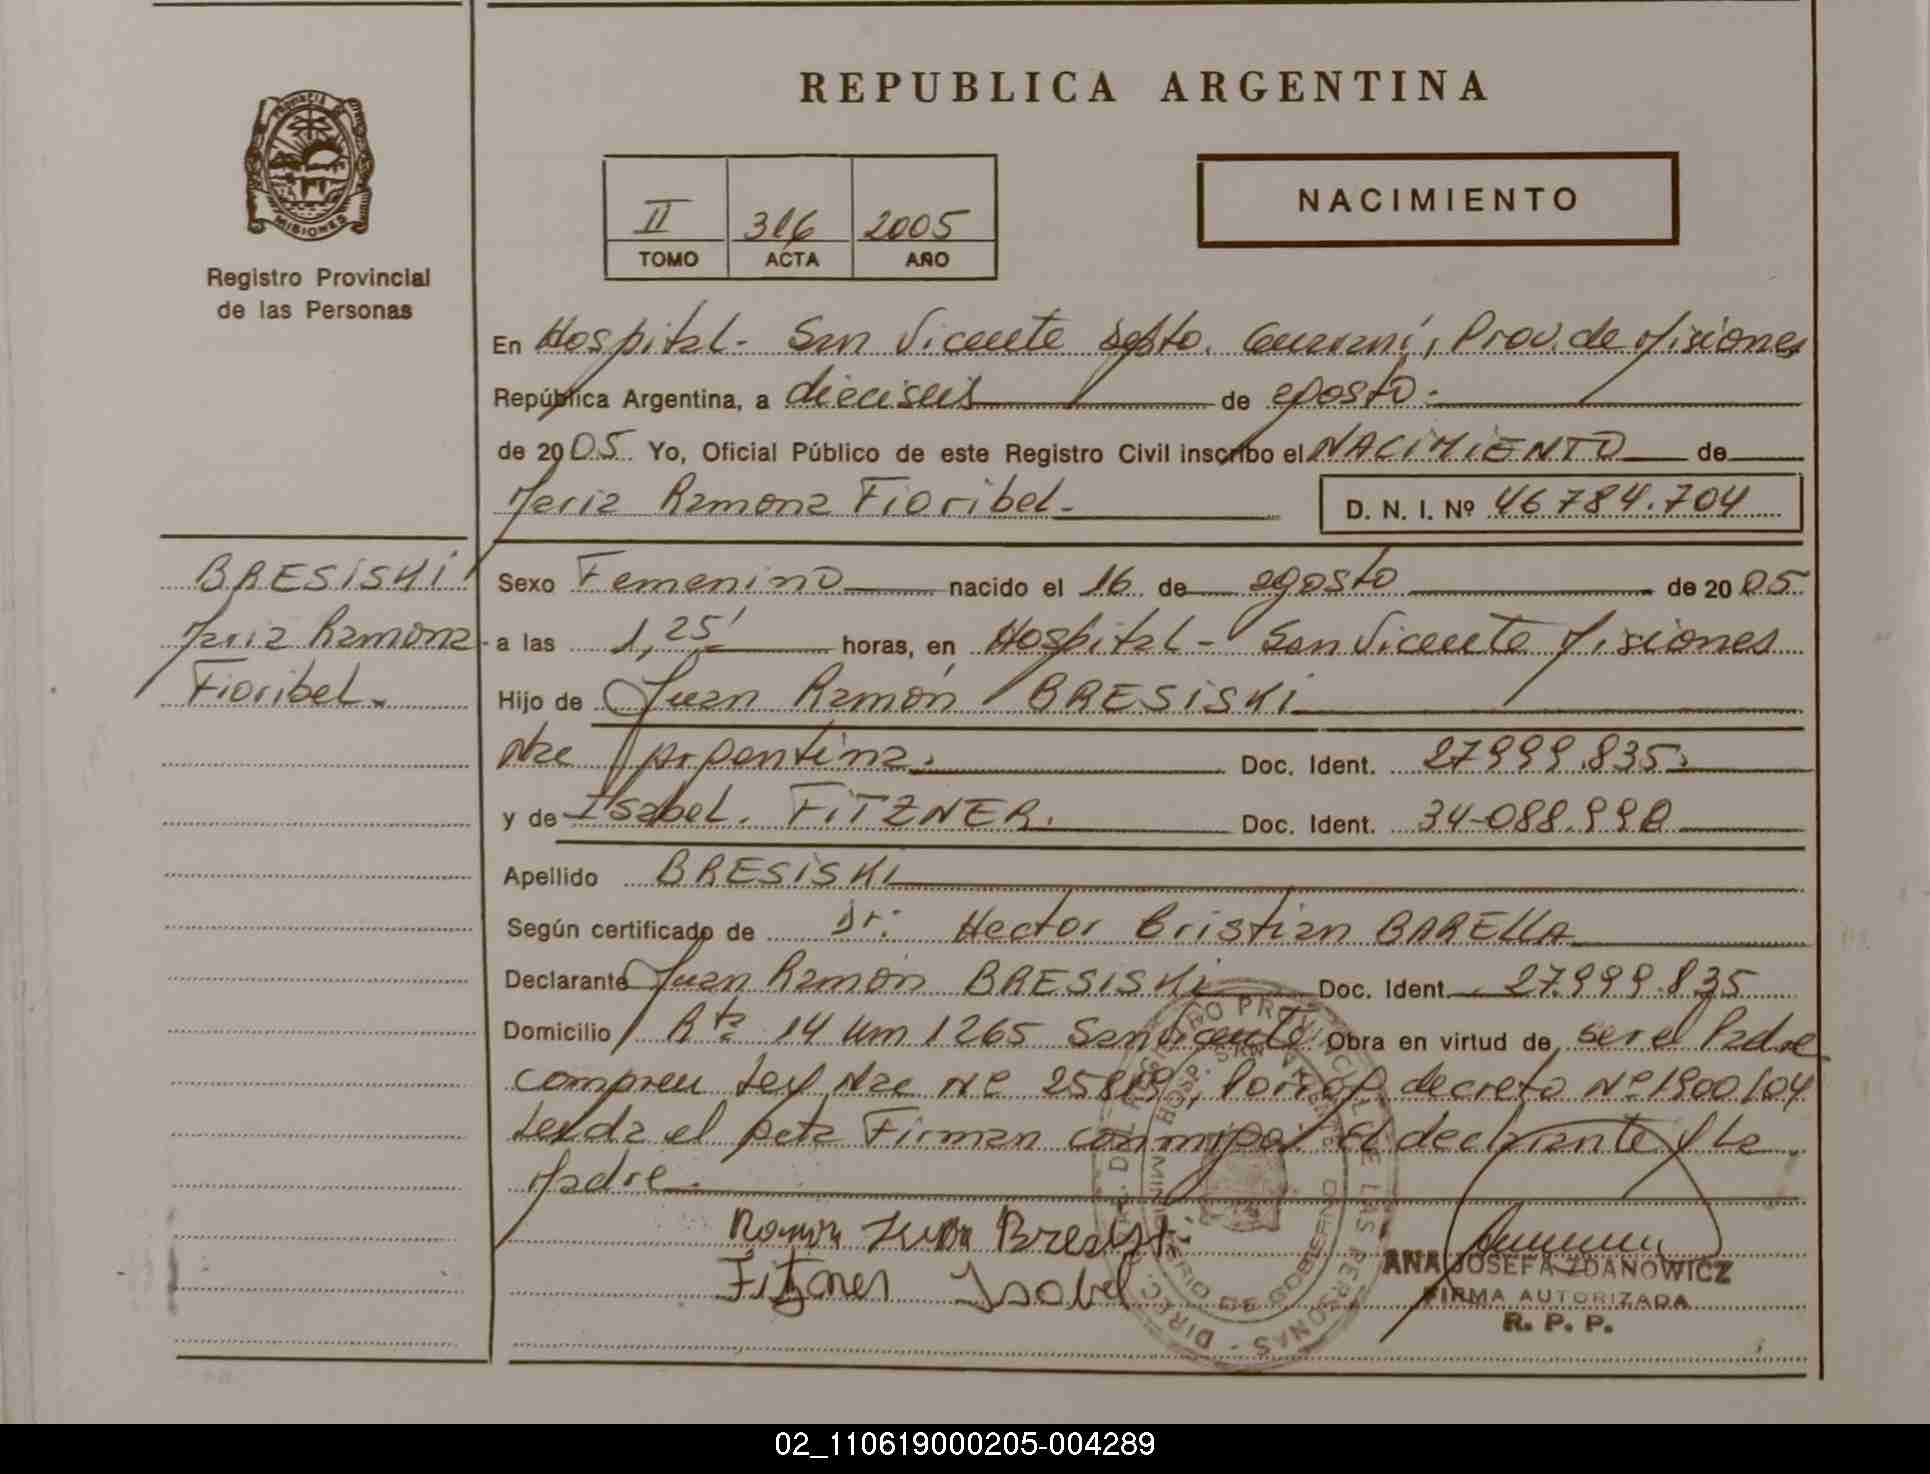 REPUBLICA ARGENTINA
PROVINCIA
MISIONES
Registro Provincial
de las Personas
II 316 2005
TOMO ACTA AÑO
NACIMIENTO
En Hospital - San Vicente Dpto. Guaraní, Prov. de Misiones
República Argentina, a dieciseis de agosto.-
de 2005 Yo, Oficial Público de este Registro Civil inscribo el NACIMIENTO de
Maria Ramona Fioribel.-
D. N. I. Nº 46784.704
BRESISKI
Maria Ramona
Fioribel.-
Sexo Femenino nacido el 16 de agosto de 2005
a las 1,25' horas, en Hospital - San Vicente Misiones
Hijo de Juan Ramón BRESISKI
Nac Argentina. Doc. Ident. 27999.835.
y de Isabel. FITZNER. Doc. Ident. 34-088.990
Apellido BRESISKI
Según certificado de Dr. Hector Cristian BARELLA
Declarante Juan Ramón BRESISKI Doc. Ident. 27.999.835
Domicilio Rta 14 Km 1265 San Vicente Obra en virtud de ser el Padre
Ley Nac Nº decreto Nº 1900/04
Leida el acta Firman conmigo. El declarante y La
Madre.-
Ramon Juan
Fitzner Isabel
ANA JOSEFA ZDANOWICZ
FIRMA AUTORIZADA
R. P. P.
DIREC. GRAL. DEL REGISTRO PROVINCIAL DE LAS PERSONAS
MINISTERIO DE GOBIERNO
02_110619000205-004289